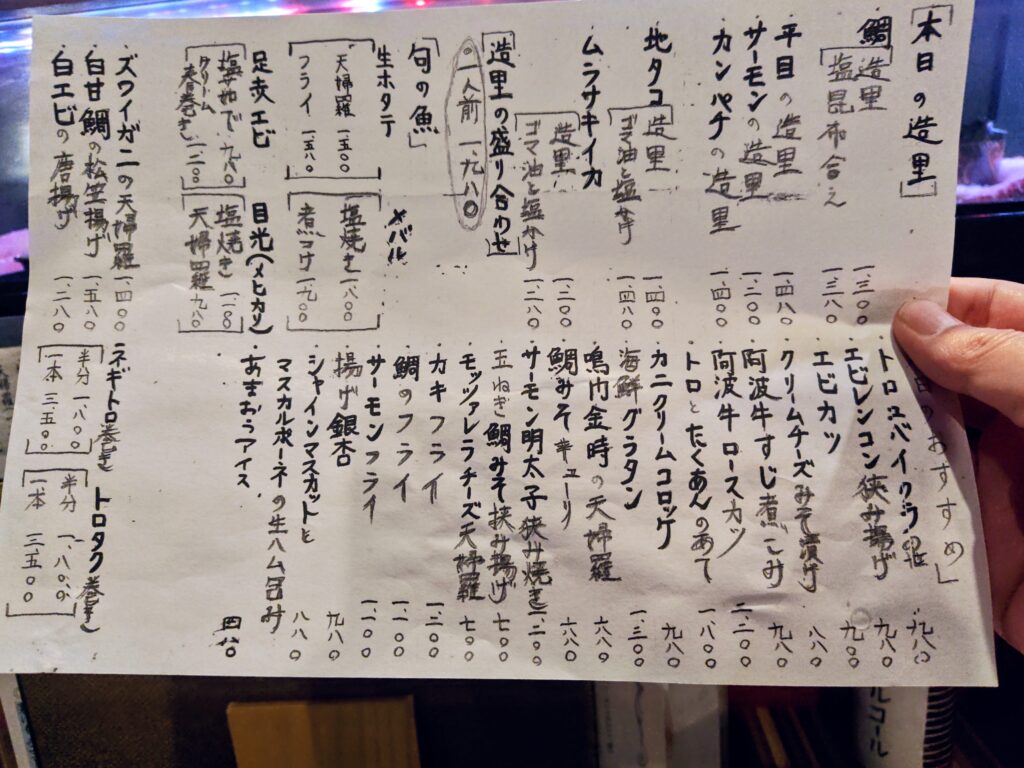 「本日の造里」
鯛 造里 一、三〇〇
塩昆布合え 一、三八〇
平目の造里 一、四八〇
サーモンの造里 一、二〇〇
カンパチの造里 一、四〇〇
地タコ 造里 一、四〇〇
ゴマ油と塩 一、四八〇
ムラサキイカ
造里 一、二〇〇
ゴマ油と塩かけ 一、二八〇
造里の盛り合わせ
一人前 一、九八〇
「旬の魚」
生ホタテ
天婦羅 一、五〇〇
フライ 一、五八〇
メバル
塩焼き 一、八〇〇
煮コケ 一、九〇〇
足赤エビ
塩ゆで 九八〇
クリーム春巻き 一、二〇〇
目光(メヒカリ)
塩焼き
天婦羅 九八〇
ズワイガニの天婦羅 一、四〇〇
白甘鯛の松笠揚げ 一、五八〇
白エビの唐揚げ 一、二八〇
日のおすすめ」
トロ 九八〇
エビレンコン狭み揚げ 九八〇
エビカツ 九〇〇
クリームチーズみそ漬け 八八〇
阿波牛すじ煮こみ 九八〇
阿波牛ロースカツ 二、二〇〇
トロとたくあんのあて 一、八〇〇
カニクリームコロッケ 九八〇
海鮮グラタン 一、三〇〇
鳴門金時の天婦羅 八八〇
鯛みそキューリ 六八〇
サーモン明太子狭み焼き 一、二〇〇
玉ねぎ鯛みそ挟み揚げ 七〇〇
モッツァレラチーズ天婦羅 七〇〇
カキフライ 一、三〇〇
鯛のフライ 一、二〇〇
サーモンフライ 一、一〇〇
揚げ銀杏 九八〇
シャインマスカットと
マスカルポーネの生ハム包み 八八〇
あまおうアイス 四八〇
ネギトロ巻き
半分 一、八〇〇
一本 三、五〇〇
トロタク巻き
半分 一、八〇〇
一本 三、五〇〇
ルコール